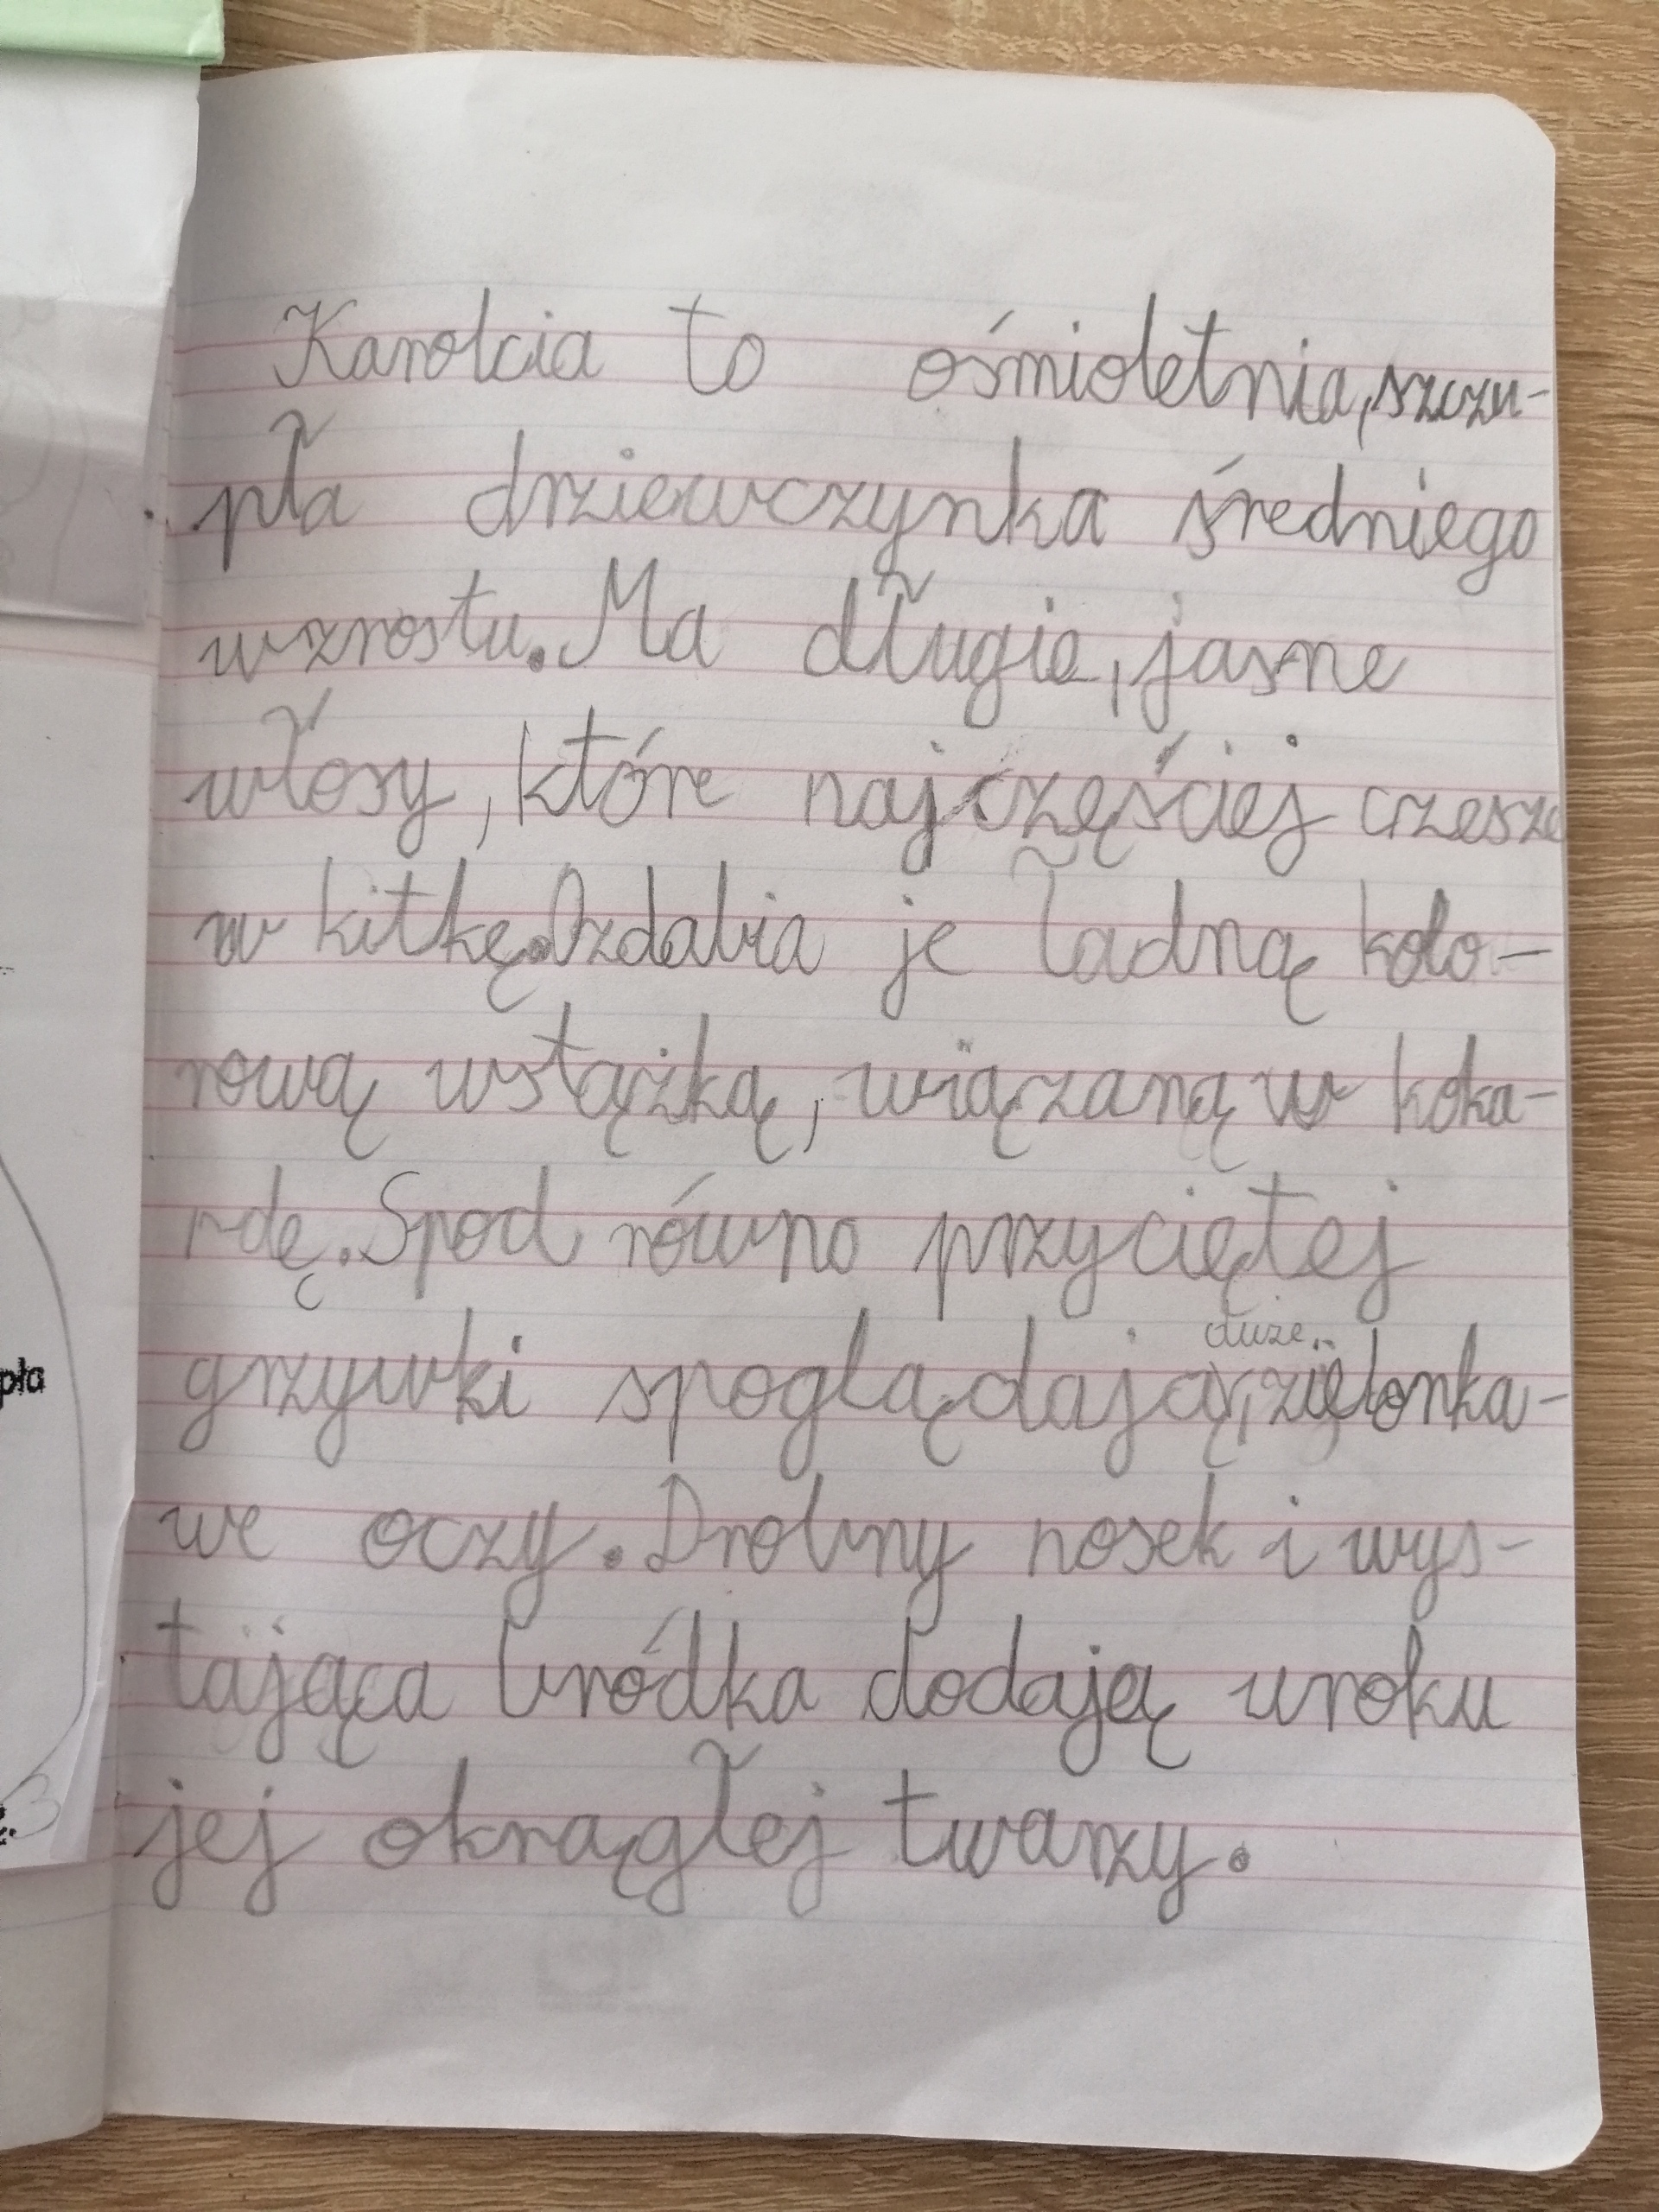 Karolcia to ośmioletnia, szczu-
pła dziewczynka średniego
wzrostu. Ma długie, jasne
włosy, które najczęściej czesze
w kitkę. Ozdabia je ładną kolo-
rową wstążką, wiązaną w koka-
rdę. Spod równo przyciętej
duże
grzywki spoglądają, zielonka-
we oczy. Drobny nosek i wys-
tająca bródka dodają uroku
jej okrągłej twarzy.
pła